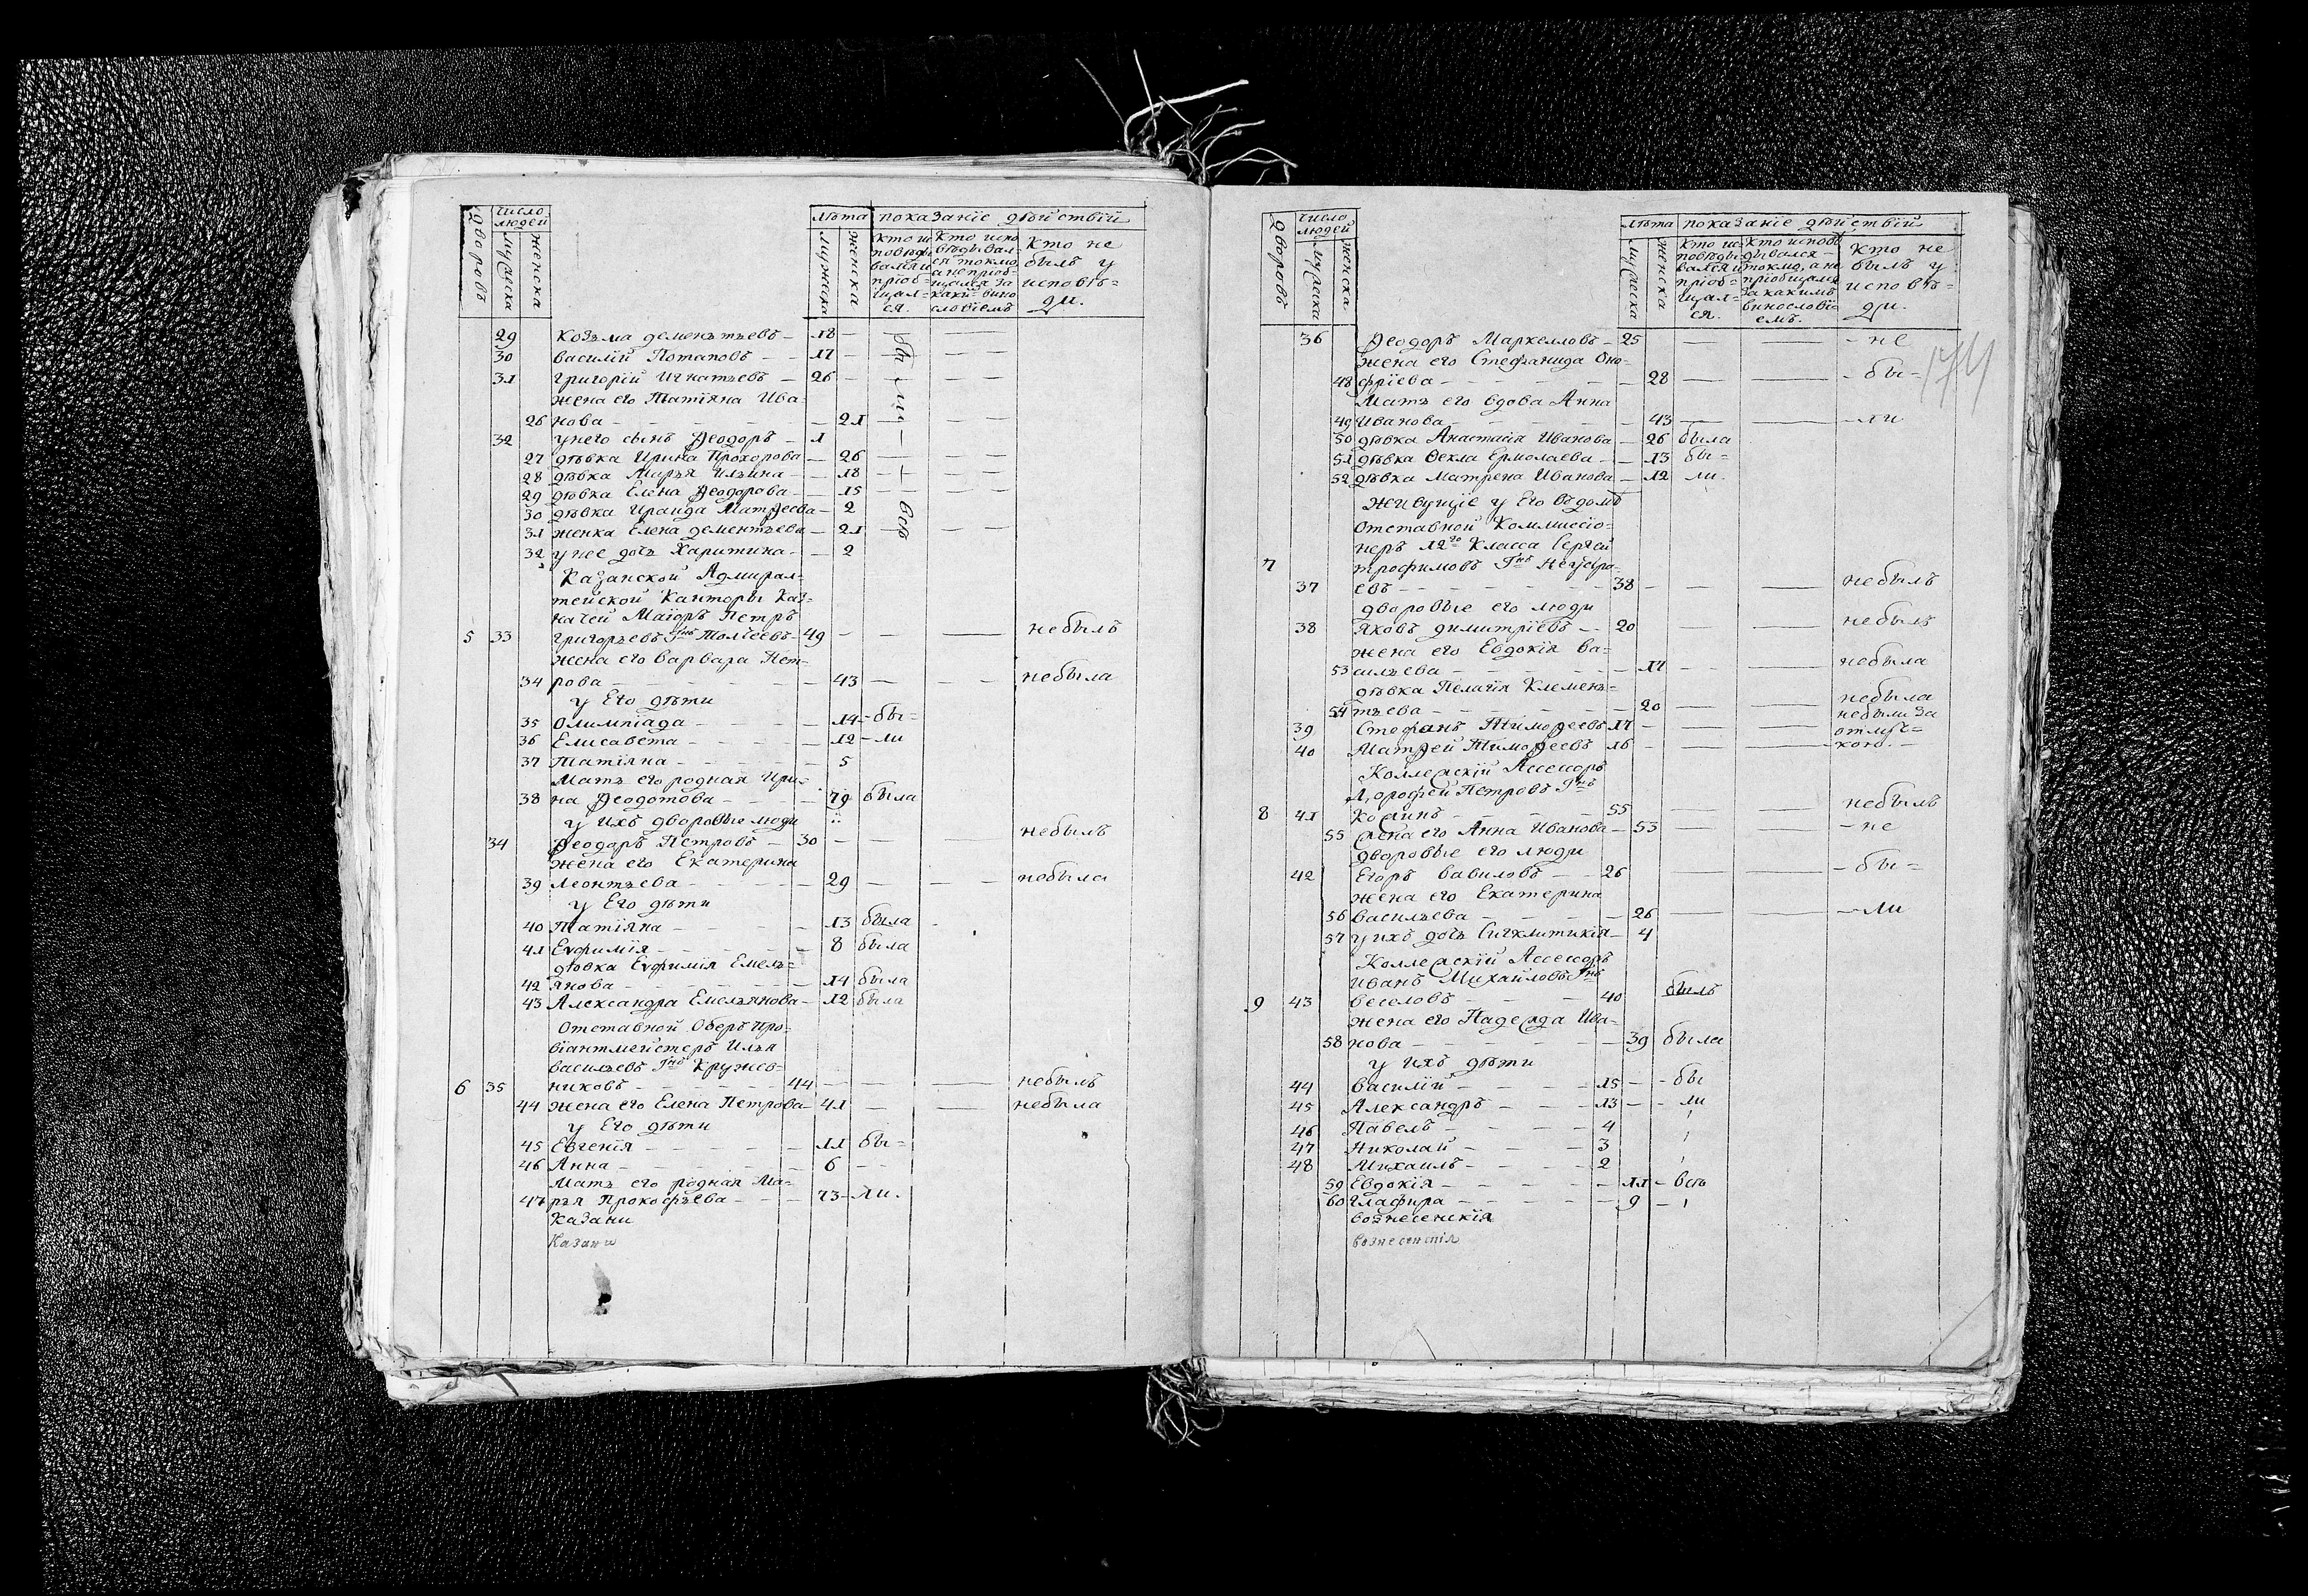 дворовъ
число людей
мужеска
женска
лѣта
мужеска
женска
показанїе дѣйствїй
кто исповѣдывался и прїобщался.
кто исповѣдывался токмо, а не прїобщался за какимъ винословїемъ
кто не былъ у исповѣди.
29 Козьма дементьевъ – 18
30 василїй Потаповъ – 17
31 григорїй Игнатьевъ – 26
жена его Татїяна Ива-
26 нова – 21
32 у него сынъ Ѳеодоръ – 1
27 дѣвка Ирина Прохорова – 26
28 дѣвка Марья Ильина – 18
29 дѣвка Елена Ѳеодорова – 15
30 дѣвка Ираида Матѳеева – 2
31 женка Елена дементьева – 21
32 у нее дочь Харитина – 2
бы ли всѣ
Казанской Адмирал=
тейской Канторы Каз=
начей Маїоръ Петръ
5 33 григорьевъ Гнъ Толѣевъ – 49 небылъ
жена его варвара Пет-
34 рова – 43 небыла
у Его дѣти
35 Олимпїада – 14 – бы=
36 Елисавета – 12 – ли
37 Татїяна – 5
Мать его родная Ири=
38 на Ѳеодотова – 79 была
у ихъ дворовые люди
34 Ѳеодоръ Петровъ – 30 небылъ
жена его Екатерина
39 Леонтьева – 29 небыла
у Его дѣти
40 Татїяна – 13 была
41 Евфимїя – 8 была
дѣвка Евфимїя Емель=
42 янова – 14 была
43 Александра Емельянова – 12 была
Отставной Оберъ про=
вїантмейстеръ Илья
васильевъ Гнъ Кружев=
6 35 никовъ – 44 небылъ
44 жена его Елена Петрова – 41 небыла
у Его дѣти
45 Евгенїя – 11 бы=
46 Анна – 6
Мать его родная Ма=
47 рья Прокофьева – 73 – ли.
Казани
Казани
дворовъ
число людей
мужеска
женска
лѣта
мужеска
женска
показанїе дѣйствїй
кто исповѣдывался и прїобщался.
кто исповѣдывался токмо, а не прїобщался за какимъ винословїемъ.
кто не былъ у исповѣди.
174
36 Ѳеодоръ Маркелловъ – 25 – не
жена его Стефанида Оно-
48 фрїева – 28 – бы=
Мать его вдова Анна
49 Иванова – 43 – ли
50 дѣвка Анастасїя Иванова – 26 была
51 дѣвка Ѳекла Ермолаева – 13 бы=
52 дѣвка Матрена Иванова – 12 ли.
Живущїе у Его въ домѣ
Отставной Коммиссїо=
неръ 12го Класса Сергей
7 трофимовъ Гнъ
37 евъ – 38 небылъ
дворовые его люди
38 Яковъ димитрїевъ – 20 небылъ
жена его Евдокїя ва=
53 сильева – 17 небыла
дѣвка Пелагїя Клемень=
54 тьева – 20 небыла
39 Стефанъ Тимоѳеевъ 17 небыли за
40 Матѳей Тимоѳеевъ 16 отлуч=кою.
Коллежскїй Ассесоръ
дорофей Петровъ Гнъ
8 41 – 55 небылъ
55 жена его Анна Иванова – 53 – не
дворовые его люди
42 Егоръ вавиловъ – 26 – бы=
жена его Екатерина
56 васильева – 26 – ли
57 у ихъ дочь Сигклитикїя – 4
Коллежскїй Ассесоръ
Иванъ Михайловъ Гнъ
9 43 веселовъ – 40 былъ
жена его Надежда Ива=
58 нова – 39 была
у ихъ дѣти
44 василїй – 15 – бы
45 Александръ – 13 – ли
46 Павелъ – 4
47 Николай – 3
48 Михаилъ – 2
59 Евдокїя – 11 – всѣ
60 глафира – 9
вознесенскїя
вознесенскїя